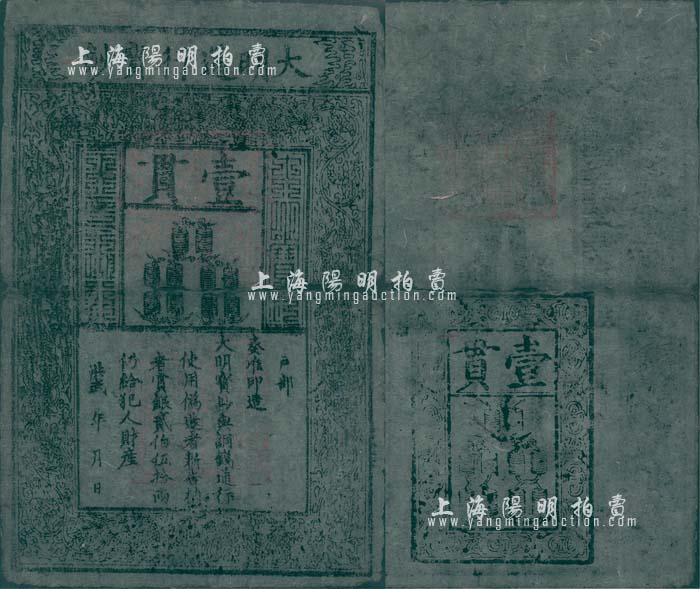 上海陽明拍賣
www.yangmingauction.com
大明通
壹貫
户部
奏准印造
大明寶鈔與銅錢通行
使用偽造者斬告捕
者賞銀貳伯伍拾兩
仍給犯人財產
洪武 年 月 日
上海陽明拍賣
www.yangmingauction.com
壹貫
上海陽明拍賣
www.yangmingauction.com